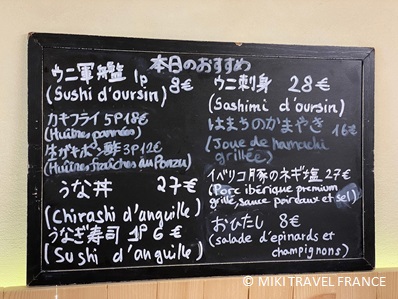 本日のおすすめ
ウニ軍艦 1p 8€
(Sushi d'oursin)
カキフライ 5P 18€
(Huîtres pannées)
生ガキポン酢 3P 12€
(Huîtres fraîches au Ponzu)
うな丼 27€
(Chirashi d'anguille)
うなぎ寿司 1P 6€
(Sushi d'anguille)
ウニ刺身 28€
(Sashimi d'oursin)
はまちのかまやき 16€
(Joue de hamachi
grillée)
イベリコ豚のネギ塩 27€
(Porc ibérique premium
grillé, sauce poireaux et sel)
おひたし 8€
(salade d'épinards et
champignons)
© MIKI TRAVEL FRANCE